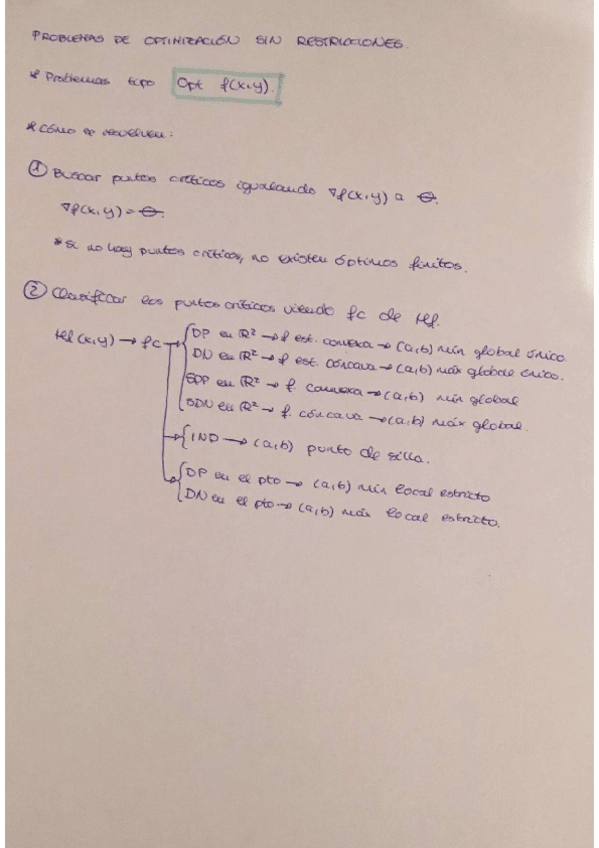 PROBLEMAS DE OPTIMIZACIÓN SIN RESTRICCIONES.
* Problemas tipo Opt f(x,y).
* Cómo se resuelven:
① Buscar puntos críticos igualando ∇f(x,y) a θ.
∇f(x,y)=θ.
* Si no hay puntos críticos, no existen óptimos finitos.
② Clasificar los puntos críticos viendo fc de Hf.
Hf(x,y) → fc → { DP en ℝ² → f est. convexa → (a,b) mín global único.
DN en ℝ² → f est. cóncava → (a,b) máx global único.
SDP en ℝ² → f. convexa → (a,b) mín global
SDN en ℝ² → f. cóncava → (a,b) máx global.
→ { IND → (a,b) punto de silla.
→ { DP en el pto → (a,b) mín local estricto
DN en el pto → (a,b) máx local estricto.